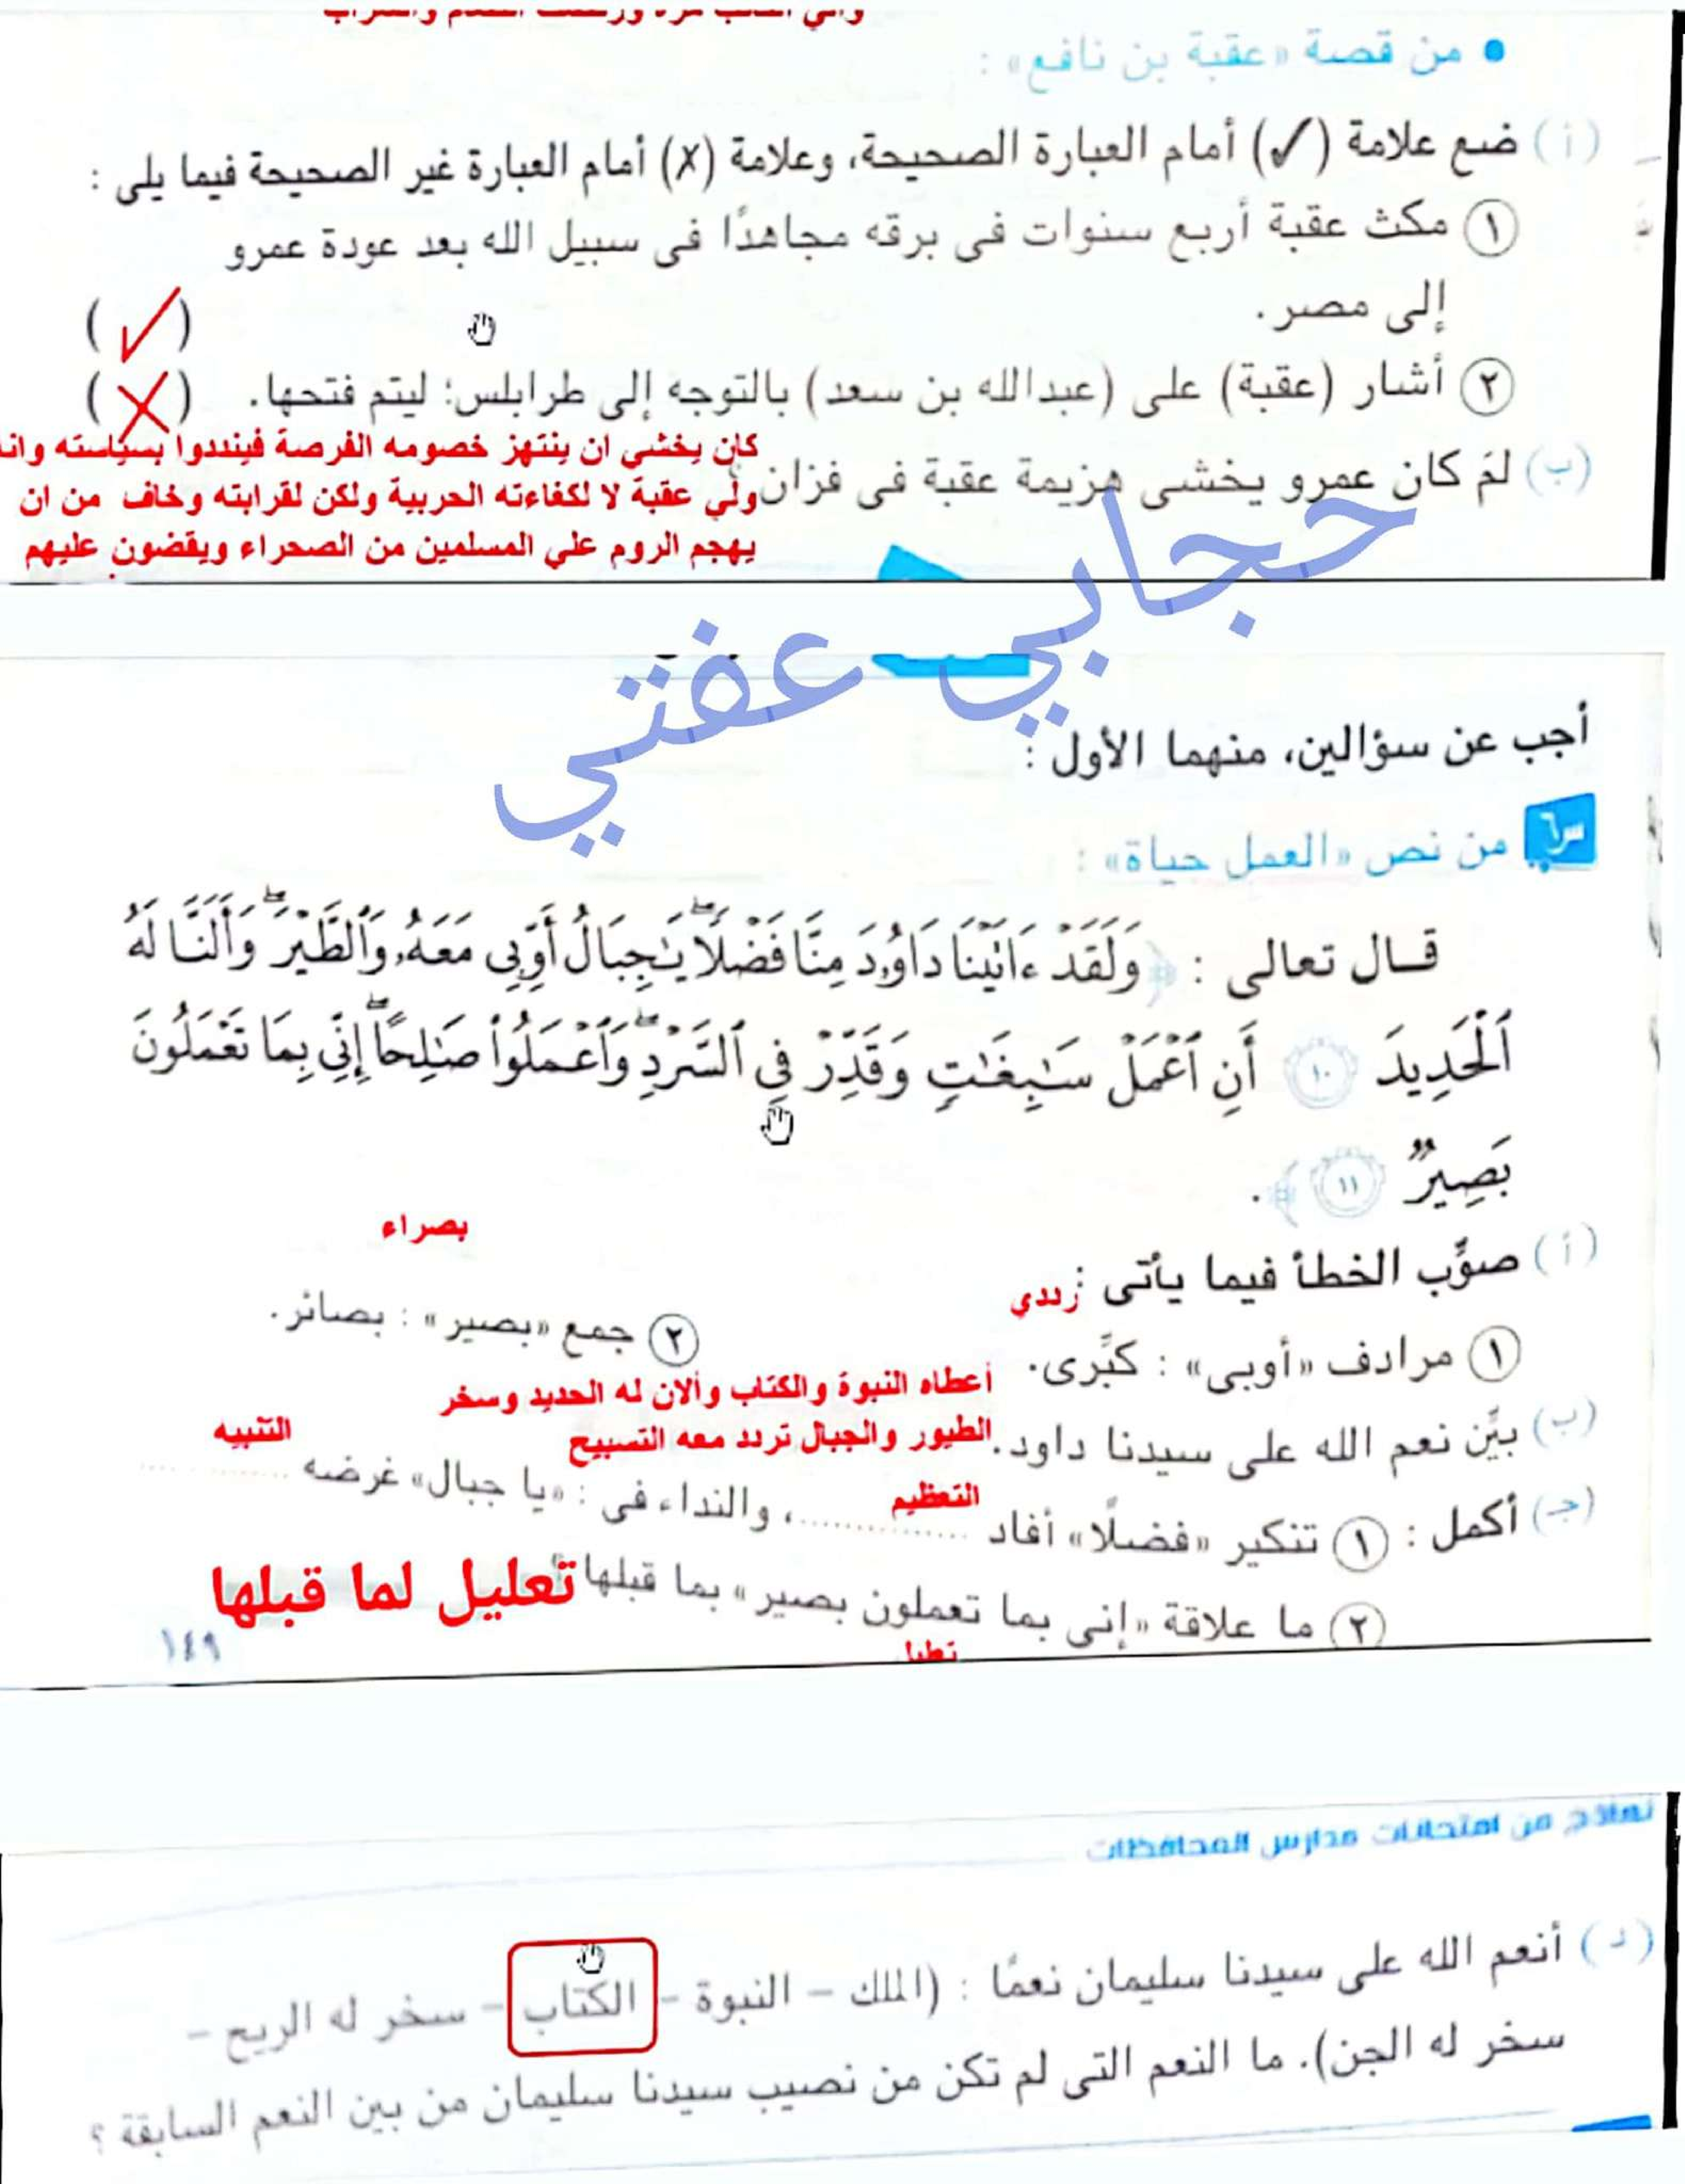 • من قصة «عقبة بن نافع» :
(أ) ضع علامة (✓) أمام العبارة الصحيحة، وعلامة (✗) أمام العبارة غير الصحيحة فيما يلى :
① مكث عقبة أربع سنوات فى برقه مجاهدًا فى سبيل الله بعد عودة عمرو
إلى مصر. (✓)
② أشار (عقبة) على (عبدالله بن سعد) بالتوجه إلى طرابلس؛ ليتم فتحها. (✗)
(ب) لمَ كان عمرو يخشى هزيمة عقبة فى فزان
كان يخشي ان ينتهز خصومه الفرصة فينددوا بسياسته وانه
ولي عقبة لا لكفاءته الحربية ولكن لقرابته وخاف من ان
يهجم الروم علي المسلمين من الصحراء ويقضون عليهم
حجابي عفتي
أجب عن سؤالين، منهما الأول :
س٦ من نص «العمل حياة» :
قال تعالى : ﴿ وَلَقَدْ ءَاتَيْنَا دَاوُۥدَ مِنَّا فَضْلًا ۖ يَٰجِبَالُ أَوِّبِى مَعَهُۥ وَٱلطَّيْرَ ۖ وَأَلَنَّا لَهُ
ٱلْحَدِيدَ ١٠ أَنِ ٱعْمَلْ سَٰبِغَٰتٍ وَقَدِّرْ فِى ٱلسَّرْدِ ۖ وَٱعْمَلُوا۟ صَٰلِحًا ۖ إِنِّى بِمَا تَعْمَلُونَ
بَصِيرٌ ١١ ﴾.
(أ) صوِّب الخطأ فيما يأتى :
① مرادف «أوبى» : كبَّرى. رددي
② جمع «بصير» : بصائر. بصراء
(ب) بيِّن نعم الله على سيدنا داود.
أعطاه النبوة والكتاب وألان له الحديد وسخر
الطيور والجبال تردد معه التسبيح
(جـ) أكمل : ① تنكير «فضلًا» أفاد التعظيم ..............، والنداء فى : «يا جبال» غرضه التنبيه ..............
② ما علاقة «إنى بما تعملون بصير» بما قبلها تعليل لما قبلها
١٤٩
نماذج من امتحانات مدارس المحافظات
(د) أنعم الله على سيدنا سليمان نعمًا : (الملك – النبوة – الكتاب – سخر له الريح –
سخر له الجن). ما النعم التى لم تكن من نصيب سيدنا سليمان من بين النعم السابقة ؟